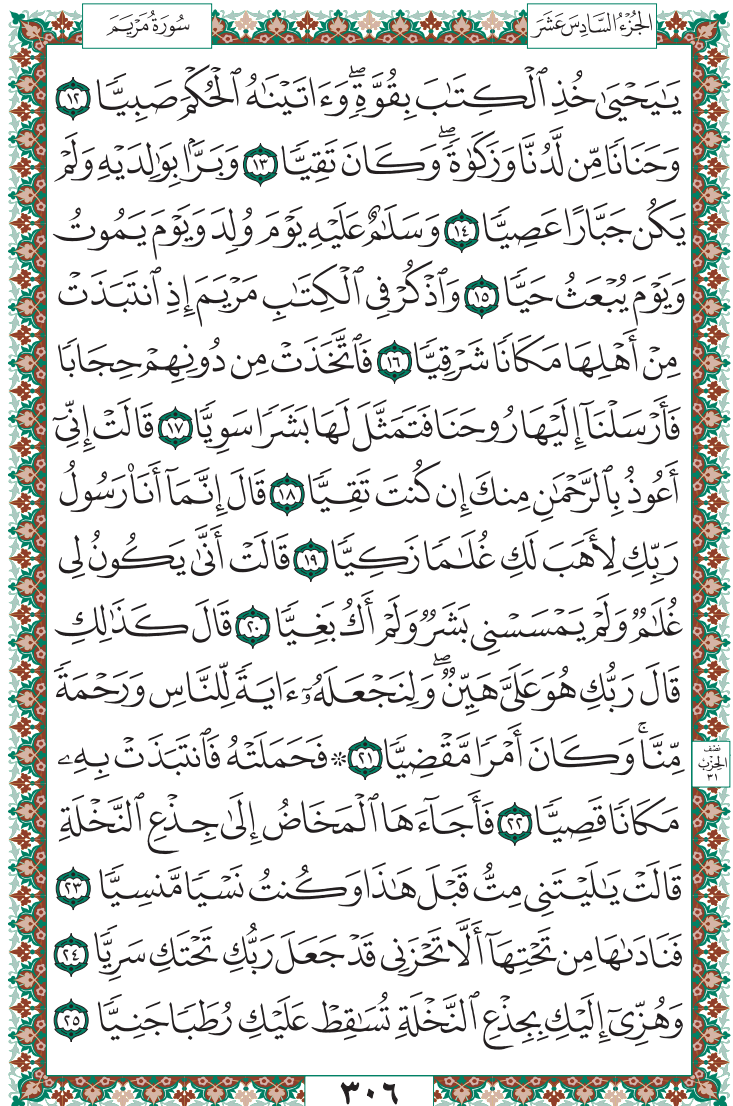 الجُزْءُ السَّادِسَ عَشَرَ
سُورَةُ مَرْيَمَ
يَٰيَحْيَىٰ خُذِ ٱلْكِتَٰبَ بِقُوَّةٖۖ وَءَاتَيْنَٰهُ ٱلْحُكْمَ صَبِيّٗا ١٢
وَحَنَانٗا مِّن لَّدُنَّا وَزَكَوٰةٗۖ وَكَانَ تَقِيّٗا ١٣ وَبَرَّۢا بِوَٰلِدَيْهِ وَلَمْ
يَكُن جَبَّارًا عَصِيّٗا ١٤ وَسَلَٰمٌ عَلَيْهِ يَوْمَ وُلِدَ وَيَوْمَ يَمُوتُ
وَيَوْمَ يُبْعَثُ حَيّٗا ١٥ وَٱذْكُرْ فِي ٱلْكِتَٰبِ مَرْيَمَ إِذِ ٱنتَبَذَتْ
مِنْ أَهْلِهَا مَكَانٗا شَرْقِيّٗا ١٦ فَٱتَّخَذَتْ مِن دُونِهِمْ حِجَابٗا
فَأَرْسَلْنَآ إِلَيْهَا رُوحَنَا فَتَمَثَّلَ لَهَا بَشَرٗا سَوِيّٗا ١٧ قَالَتْ إِنِّيٓ
أَعُوذُ بِٱلرَّحْمَٰنِ مِنكَ إِن كُنتَ تَقِيّٗا ١٨ قَالَ إِنَّمَآ أَنَا۠ رَسُولُ
رَبِّكِ لِأَهَبَ لَكِ غُلَٰمٗا زَكِيّٗا ١٩ قَالَتْ أَنَّىٰ يَكُونُ لِي
غُلَٰمٞ وَلَمْ يَمْسَسْنِي بَشَرٞ وَلَمْ أَكُ بَغِيّٗا ٢٠ قَالَ كَذَٰلِكِ
قَالَ رَبُّكِ هُوَ عَلَيَّ هَيِّنٞۖ وَلِنَجْعَلَهُۥٓ ءَايَةٗ لِّلنَّاسِ وَرَحْمَةٗ
مِّنَّاۚ وَكَانَ أَمْرٗا مَّقْضِيّٗا ٢١ ۞ فَحَمَلَتْهُ فَٱنتَبَذَتْ بِهِۦ
مَكَانٗا قَصِيّٗا ٢٢ فَأَجَآءَهَا ٱلْمَخَاضُ إِلَىٰ جِذْعِ ٱلنَّخْلَةِ
قَالَتْ يَٰلَيْتَنِي مِتُّ قَبْلَ هَٰذَا وَكُنتُ نَسْيٗا مَّنسِيّٗا ٢٣
فَنَادَىٰهَا مِن تَحْتِهَآ أَلَّا تَحْزَنِي قَدْ جَعَلَ رَبُّكِ تَحْتَكِ سَرِيّٗا ٢٤
وَهُزِّيٓ إِلَيْكِ بِجِذْعِ ٱلنَّخْلَةِ تُسَٰقِطْ عَلَيْكِ رُطَبٗا جَنِيّٗا ٢٥
نصْف
الحِزْب
٣١
٣٠٦